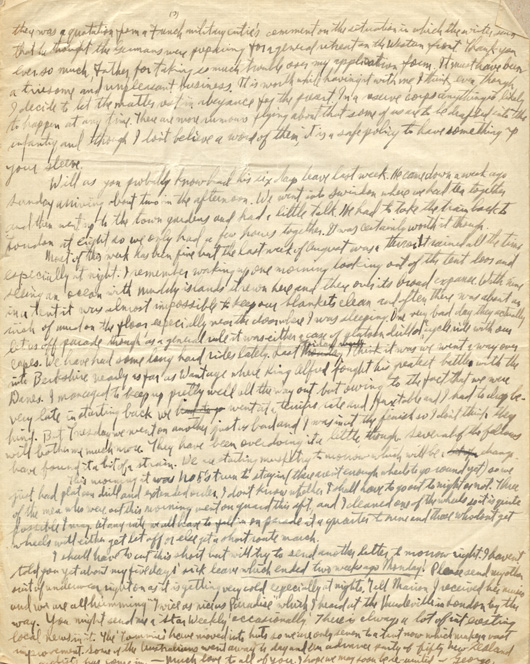 (3)
they was a quotation from a French military critic's comment on the situation in which the writer said
that he thought the Germans were preparing for a general retreat on the Western front. Thank you
ever so much, Father for taking so much trouble over my application form. It must have been
a tiresome and unpleasant business. It is worth while having it with me I think even though
I decide to let the matter rest in abeyance for the present. In a reserve corps anything is likely
to happen at any time. There are more rumours flying about that some of us are to be drafted into the
infantry and though I don't believe a word of them it is a safe policy to have something up
your sleeve.
Will as you probably know had his six days leave last week. He came down a week ago
Sunday arriving about two in the afternoon. We went into Swindon where we had tea together
and then went up to the town gardens and had a little talk. He had to take the train back to
London at eight so we only had a few hours together. It was certainly worth it though.
Most of this week has been fine but the last week of August it rained all the time
especially at night. I remember waking up one morning looking out of the tent door and
seeing an ocean with muddy islands strewn here and there outside broad expanse. With nine
in a tent it was almost impossible to keep our blankets clean and often there was about an
inch of mud on the floor especially near the door where I was sleeping. One very bad day they actually
let us off parade though as a general rule it was either a case of drill or a ride with our
capes. We have had some long hard rides lately. Last I think it was we went a way over
into Berkshire nearly as far as Wantage where King Alfred fought his greatest battles with the
Danes. I managed to keep up pretty well all the way out but owing to the fact that we were
very late in starting back we went at a terrific rate and I had to drop be-
hind. But Tuesday we went on another just as bad and I was in at the finish so I don't think they
will bother me much more. They have been overdoing it a little though. Several of the fellows
have found it a bit of a strain. We are starting musketry to morrow which will be a change.
This morning it was No 5's turn to stay in (they aren't enough wheels to go round yet) so we
just had platoon drill and extended order. I don't know whether I shall have to go out to night or not. Three
of the men who were out this morning went on guard this aft. and I cleaned one of their wheels so it is quite
possible I may. At any rate we all have to on parade at a quarter to nine and those who don't get
wheels will either get let off or else get a short route march.
I shall have to cut this short but will try to send another letter to morrow night. I haven't
told you yet about my five days' sick leave which ended two weeks ago Monday. Please send my other
suit of underwear right on as it is getting very cold especially at nights. Tell Marion I received her music
and we are all humming "Twill as nice as Paradise" which I heard at the Vaudeville in London by the
way. You might send me a Star Weekly occasionally. There is always a lot of interesting
local news in it. The "Tommies" have moved into huts so we are only seven to a tent now which makes a vast
improvement. Some of the Australians went away to day and an advance party of fifty New Zealand
has come in — Much love to all of you.